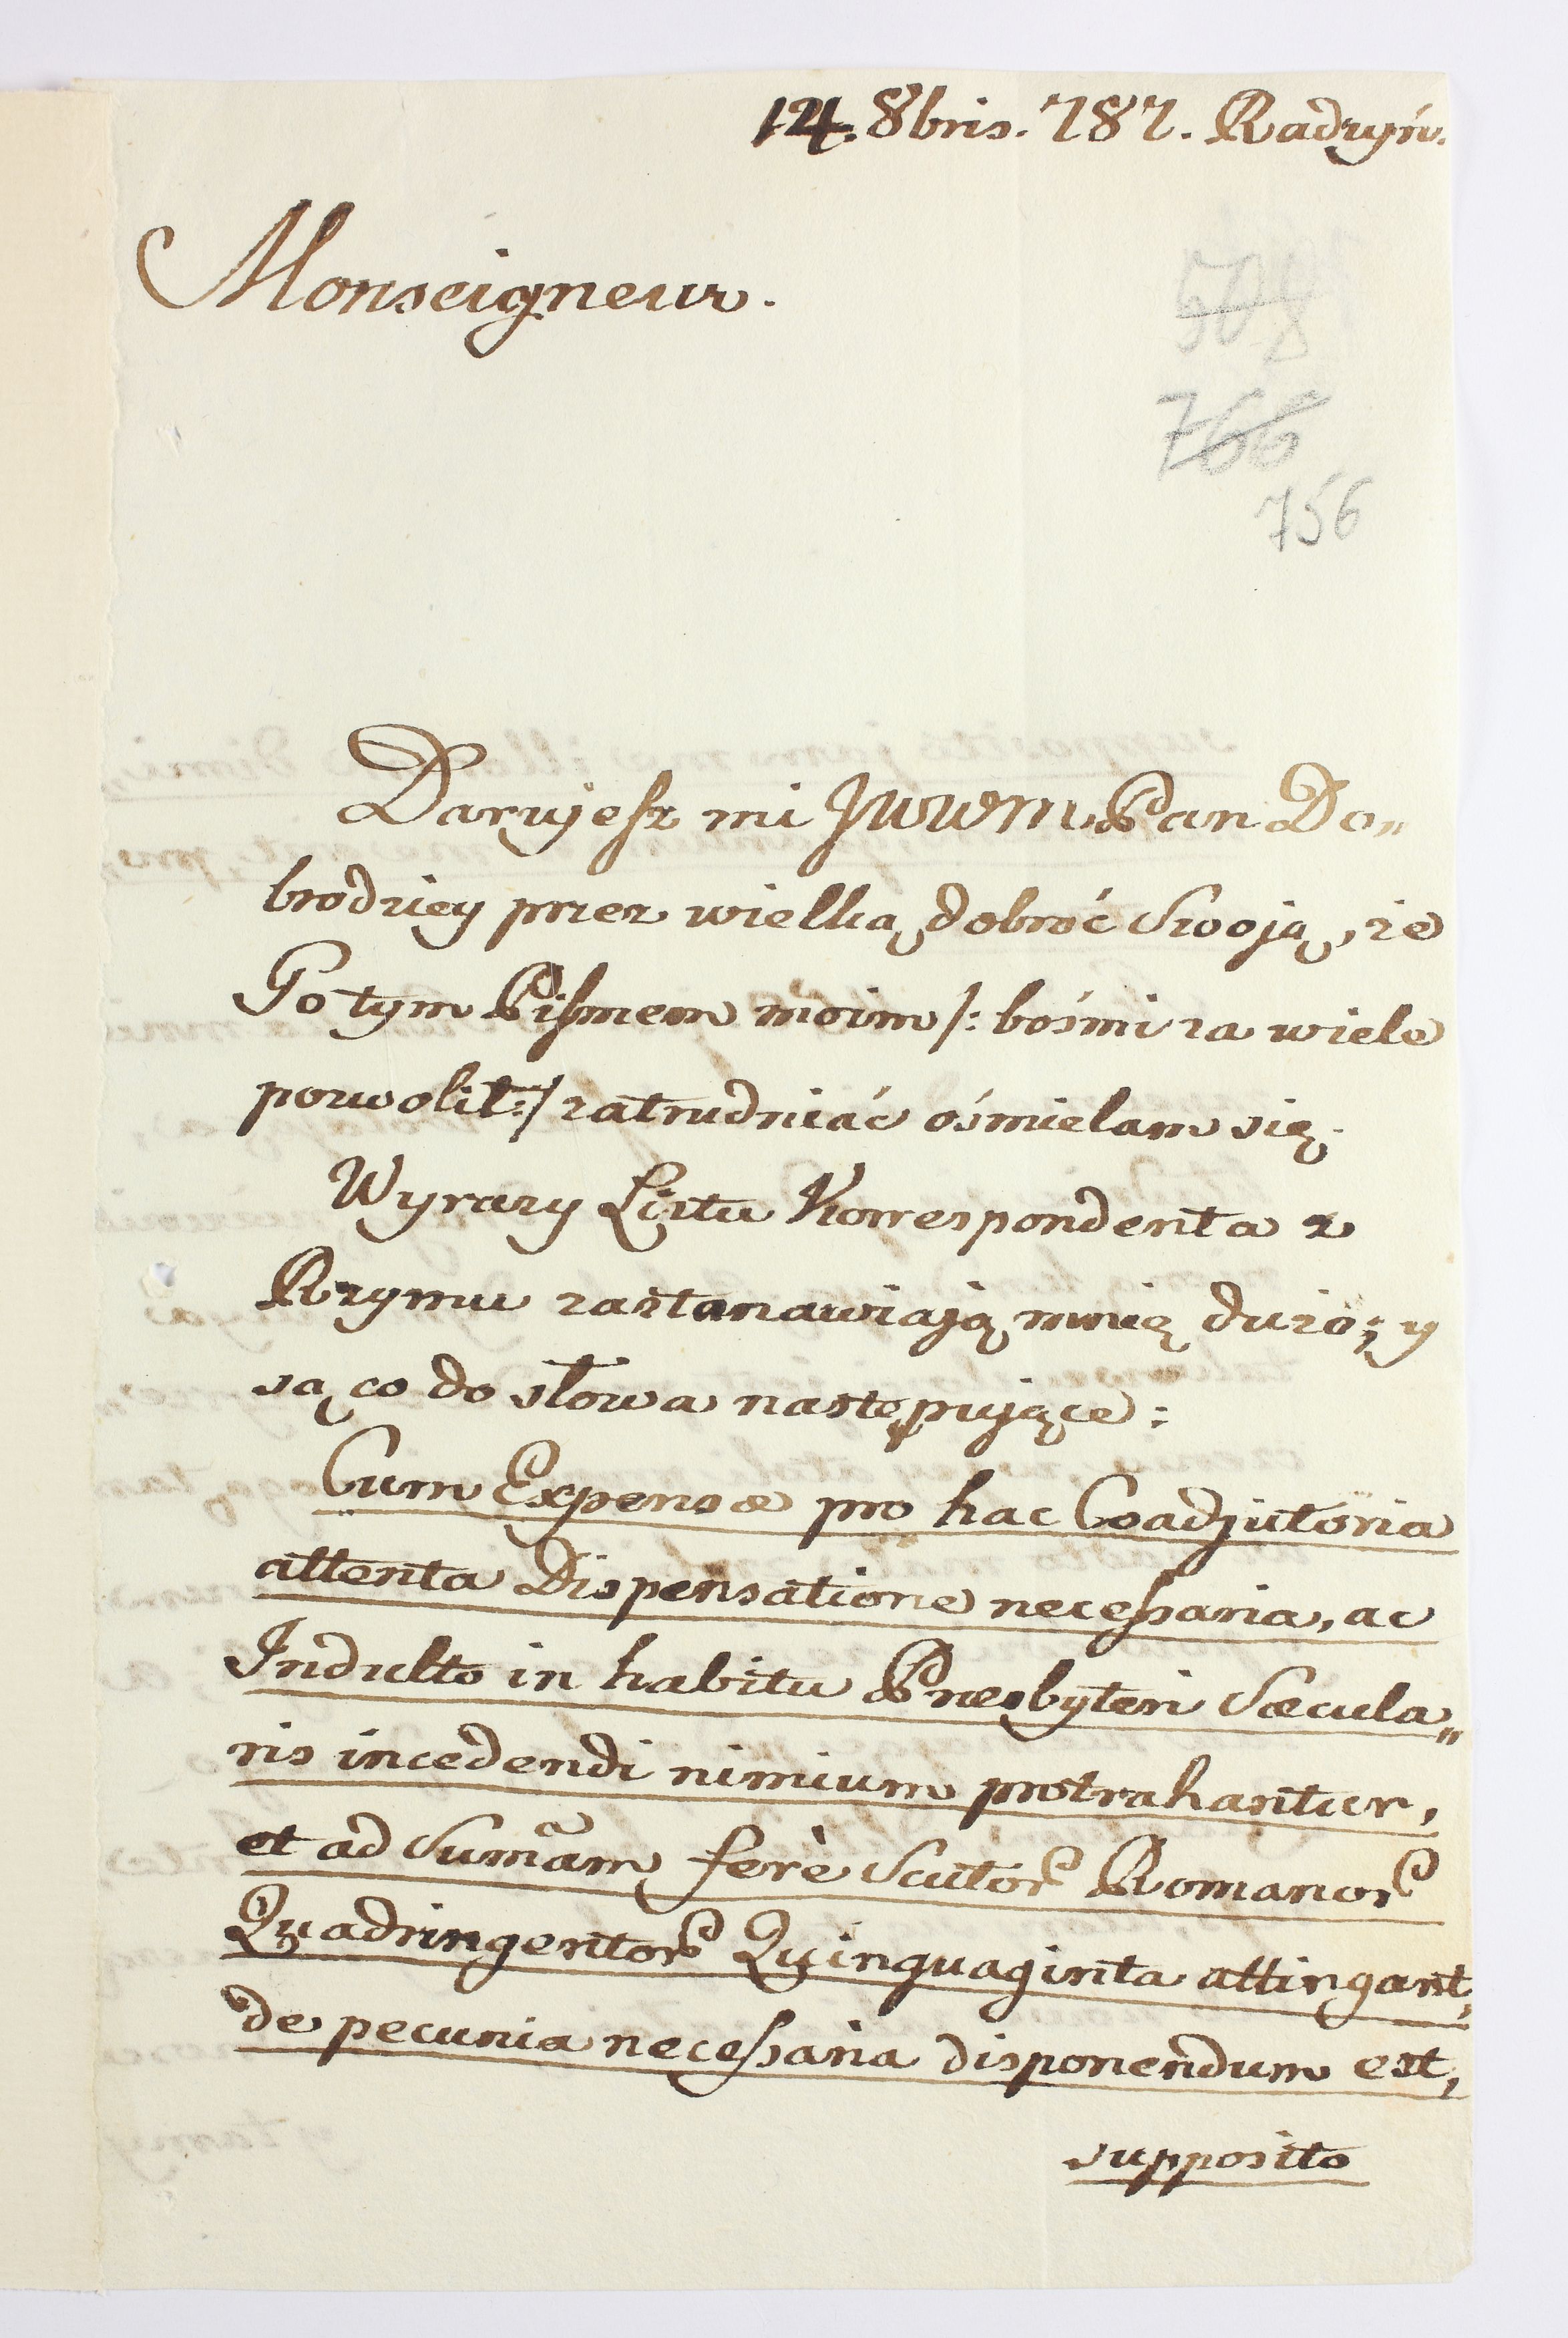 14. 8bris. 787. Radzyń.
Monseigneur.
508
766
756
Daruiesz mi JWWM Pan Do„
brodziey przez wielką dobroć Swoją, że
Go tym Pismem moim /: boś mi za wiele
pozwolił :/ zatrudniać ośmielam się.
Wyrazy Listu Korrespondenta z
Rzymu zastanawiają mnię dużo; y
są co do słowa następujące:
Cum Expensæ pro hac Coadjutoria
attenta Dispensatione necessaria, ac
Indulto in habitu Presbyteri Sæcula„
ris incedendi nimium protrahantur,
et ad Sum̃am ferè Scutor Romanor
Quadringentor Quinquaginta attingant,
de pecunia necessaria disponendum est,
supposito